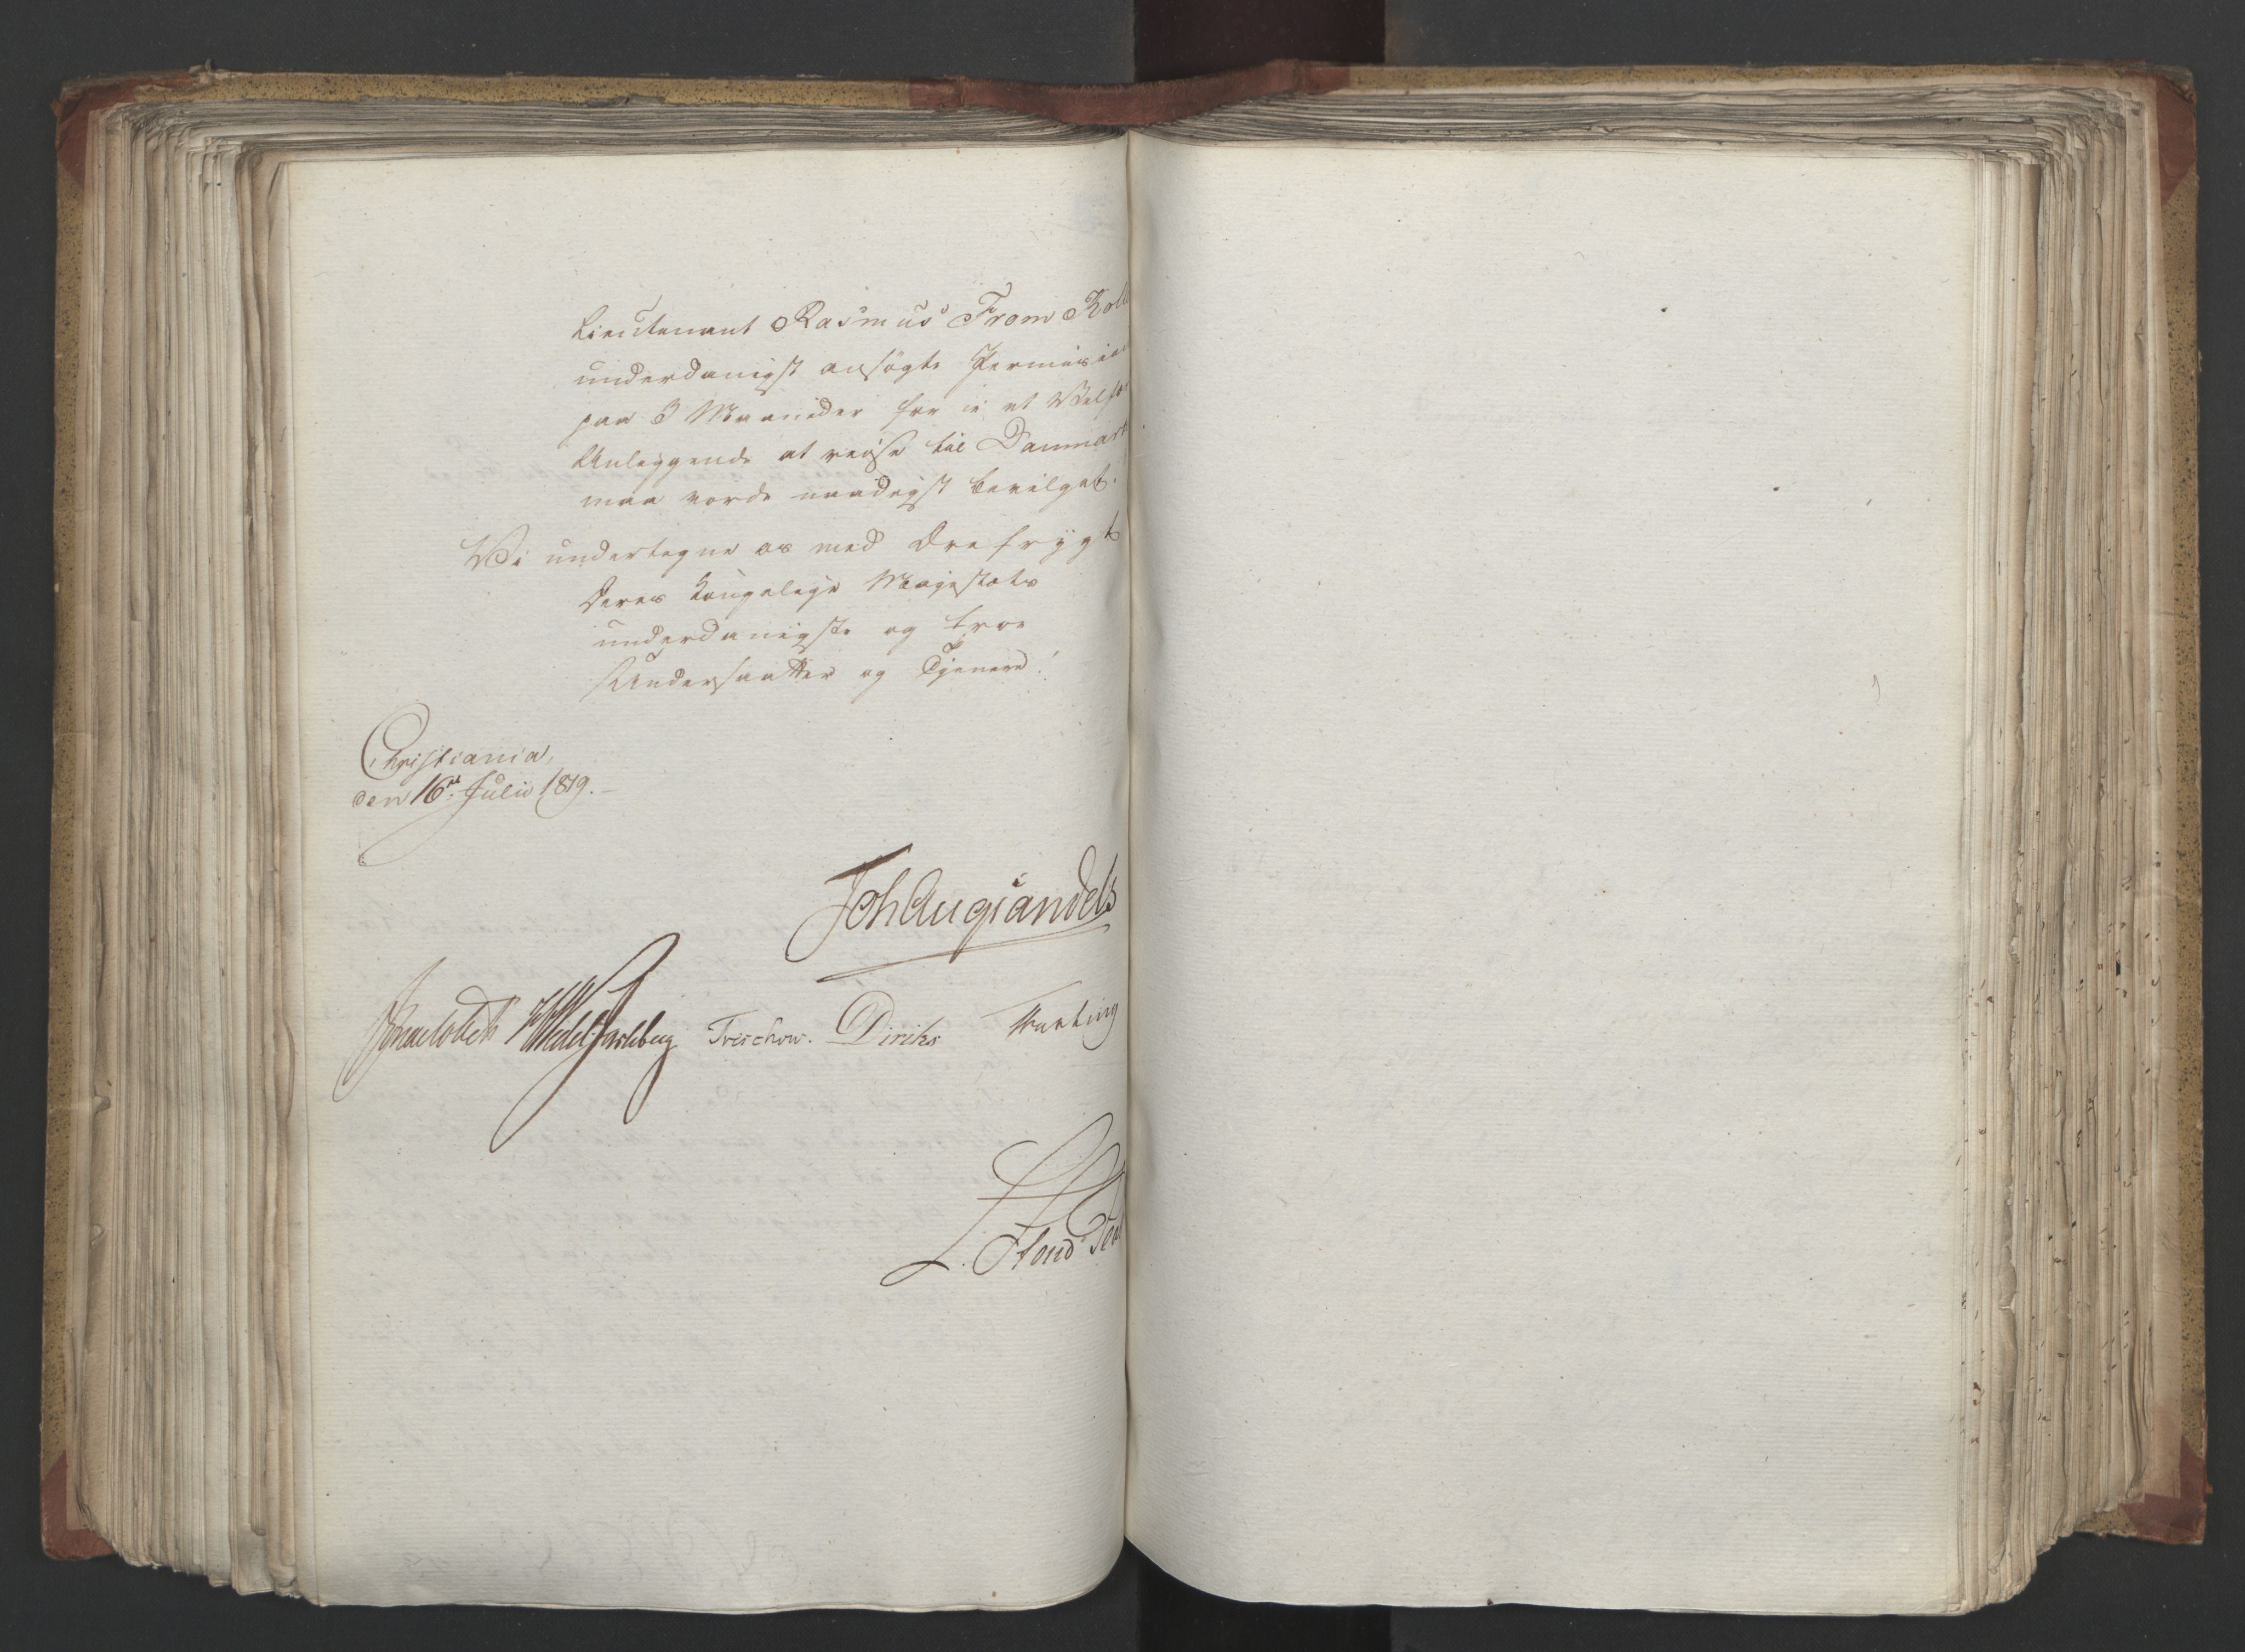 Lieutenant Rasmus From
underdanigst ansøgte Permission
paa 3 Maaneder for i et
Anleggende at reise til Danmark
maa vorde naadigst bevilget.
Vi undertegne os med Ærefrygt
Deres Kongelige Majestæts
underdanigste og troe
Undersaatter og Tjenere!
Christiania,
den 16de Julii 1819.
Joh Aug Sandels
HWedel Jarlsberg Treschow. Diriks